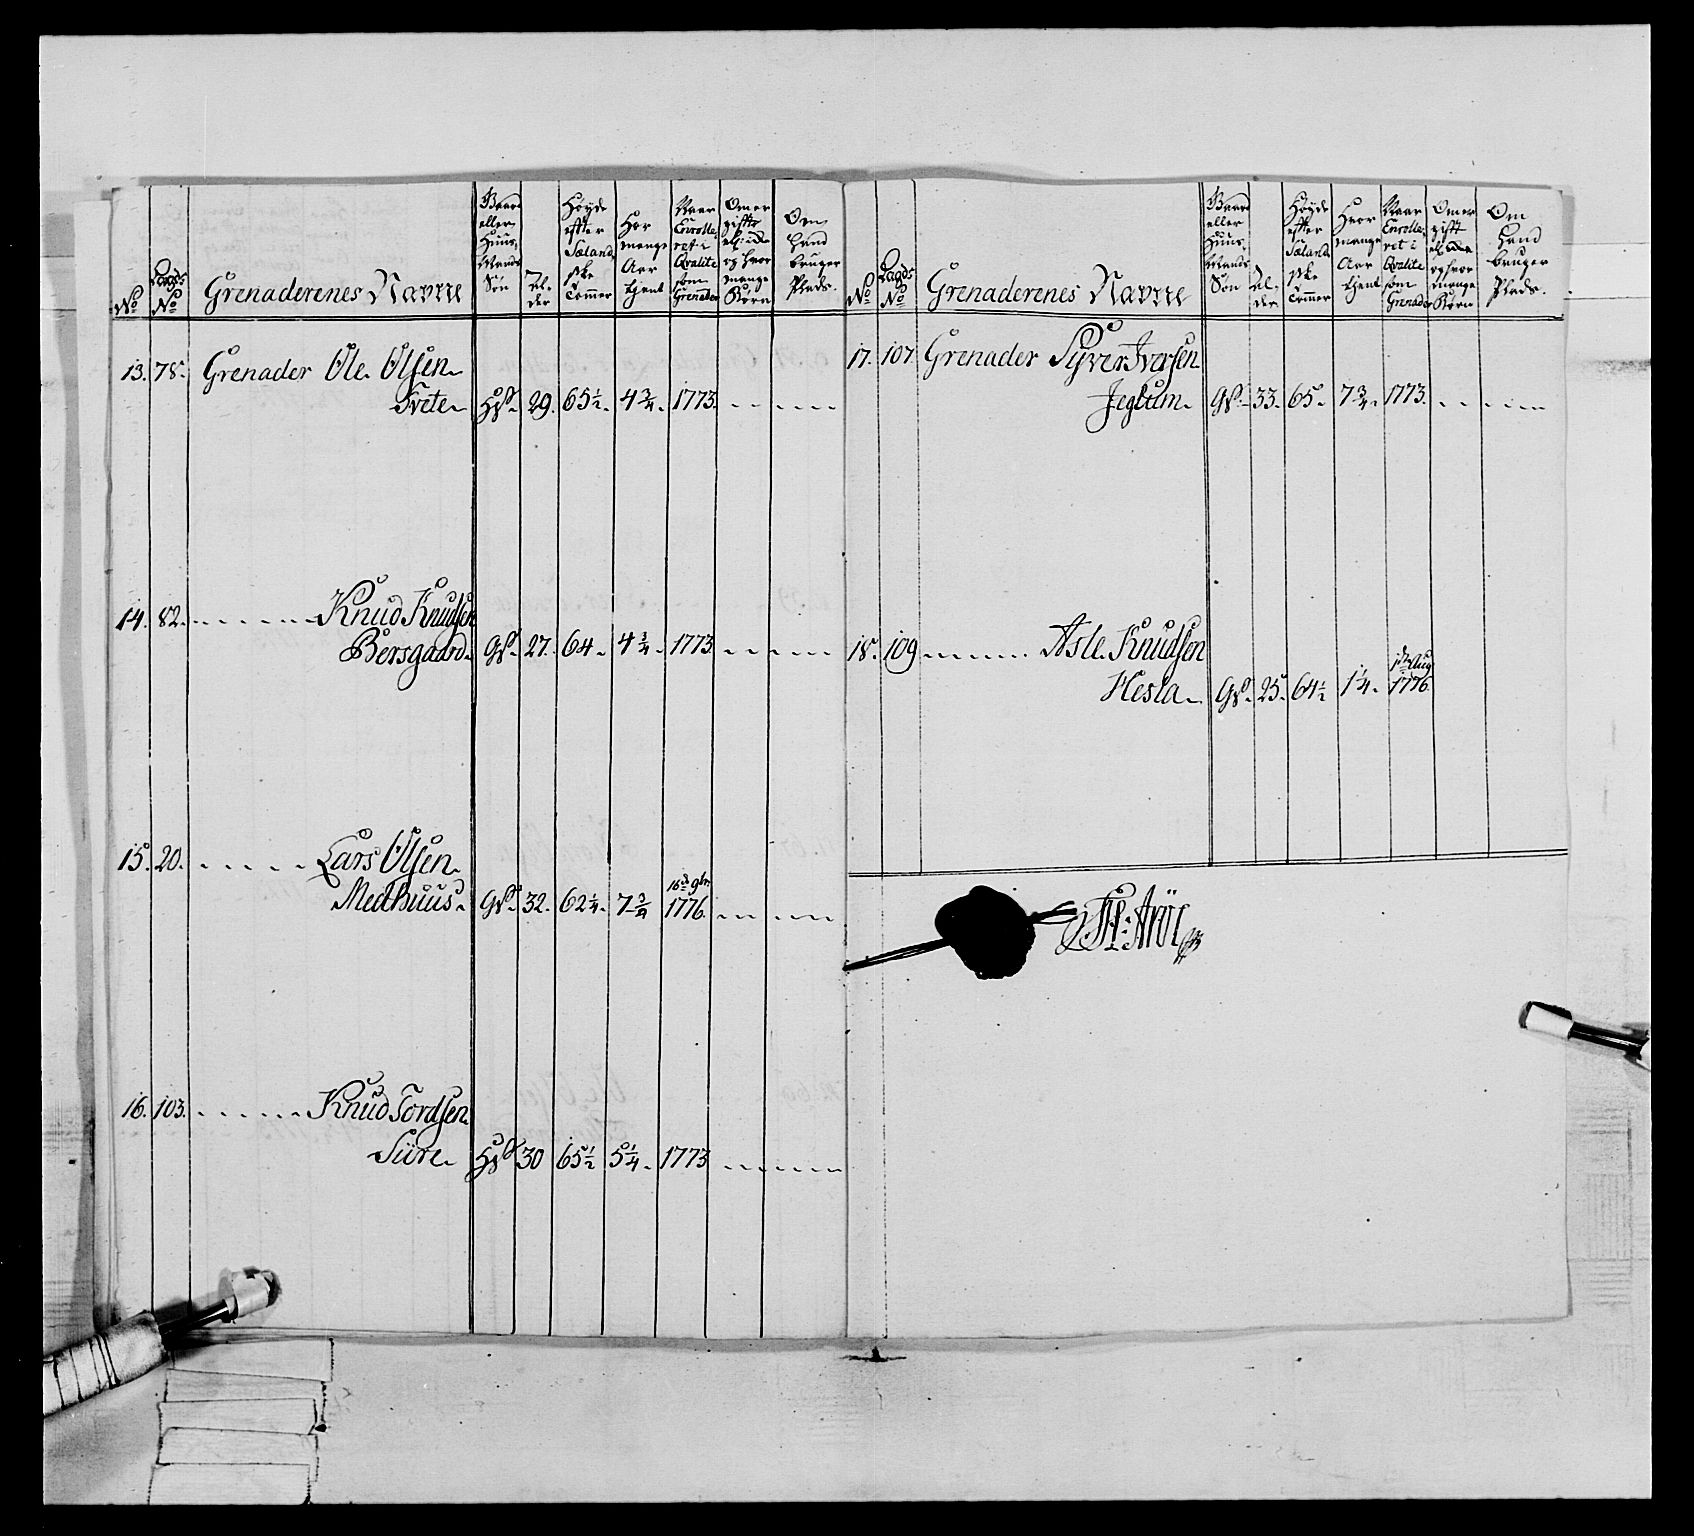 No
Lægds No
Grenaderenes Navne
Gaard eller Huus Mands Søn
Al- der
Høyde effter Sælands ske Tommer
Hor mange Aar tient
Naar Enrolle- ret i Qvalite som Grenader
Om er gifft ell: ude og hvor mange Børn
Om Land bruger Plads.
13. 78. Grenader Ole Olsen
Tvete HS. 29. 65½ 4¾ 1773.
14. 82. Knud Knudsen
Bersgaard GS. 27. 64. 4¾ 1773.
15. 20. Lars Olsen
16d 9br
Medhuus. GS. 32. 62¼ 7¾ 1776.
16. 103. Knud Tordsen
Siire HS 30 65½ 5¼ 1773
No
Lægds No
Grenaderenes Navne
Gaard eller Huus Mands Søn
Al- der
Høyde effter Sælands ske Tommer
Hvor mange Aar tient
Naar Enrolle- ret i Qvalite som Grenader
Om er gifft og hvor mange Børn
Om Land bruger Plads.
17. 107 Grenader Syver Iversen
Jeglum GS. 33. 65. 7¾. 1773.
18. 109 Asle Knudsen
Aug
Hesla GS. 25. 64½ 1¼. 1776.